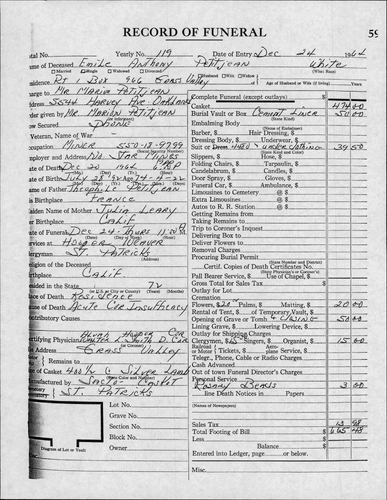 RECORD OF FUNERAL
55
Yearly No. 119
Date of Entry Dec 24 1964
Name of Deceased Emile Anthony Petitjean White
Married Single Widowed Divorced Husband Wife Widow
(What Race)
Residence Rt 1 Box 966 Grass Valley
Age of Husband or Wife (if living)
Charge to Mr Marion Petitjean
Address 5544 Harvey Ave Oakland
Order given by Mr Marion Petitjean
Veteran, Name of War
Occupation Miner 550-18-9799
(Social Security Number)
Employer and Address No Star Mines
Date of Death Dec 20 1964
Date of Birth
Name of Father Theophile Petitjean
Birthplace France
Maiden Name of Mother Julia Leary
Birthplace Calif
Date of Funeral Dec 24-Thurs
Services at Hooper Weaver
Clergyman St Patricks
Religion of the Deceased
Birthplace Calif
Resided in the State 72
(or U.S. or City or County) (Years) (Months)
Place of Death Residence
Cause of Death Acute Cor Insufficiency
Contributory Causes
Certifying Physician
His Address Grass Valley
Remains to
Silver
Manufactured by Sacto Casket
Cemetery St. Patricks
Lot No.
Grave No.
Section No.
Block No.
Owner
Diagram of Lot or Vault
Complete Funeral (except outlays) $
Casket 474 00
Burial Vault or Box Cement Liner 50 00
(State Kind)
Embalming Body
(Name of Embalmer)
Barber, $ Hair Dressing, $
Dressing Body, $ Underwear, $
Suit or Dress underclothing 39 50
(State Kind and Color)
Slippers, $ Hose, $
Folding Chairs, $ Tarpaulin, $
Candelabrum, $ Candles, $
Door Spray, $ Gloves, $
Funeral Car, $ Ambulance, $
Limousines to Cemetery @ $
Extra Limousines @ $
Autos to R. R. Station @ $
Getting Remains from
Taking Remains to
Trip to Coroner's Inquest
Delivering Box to
Deliver Flowers to
Removal Charges
Procuring Burial Permit
(State Number and District)
Certif. Copies of Death Certificates No.
(State Physician's or Coroner's)
Pall Bearer Service, $ Use of Chapel, $
Gross Total for Sales Tax $
Outlay for Lot
Cremation
Flowers, $20 Palms, $ Matting, $ 20 00
Rental of Tent, $ of Temporary Vault, $
Opening of Grave or Tomb & Closing $ 50 00
Lining Grave, $ Lowering Device, $
Outlay for Shipping Charges
Clergyman, $15 Singers, $ Organist, $ 15 00
Railroad or Motor Tickets, $ Aeroplane Service, $
Telegr., Phone, Cable or Radio Charges
Cash Advanced
Out of town Funeral Director's Charges
Personal Service
Rosary Beads 3 00
line Death Notices in Papers $
(Names of Newspapers)
Sales Tax
Total Footing of Bill $
Less $
Balance $
Entered into Ledger, page or below.
Misc.